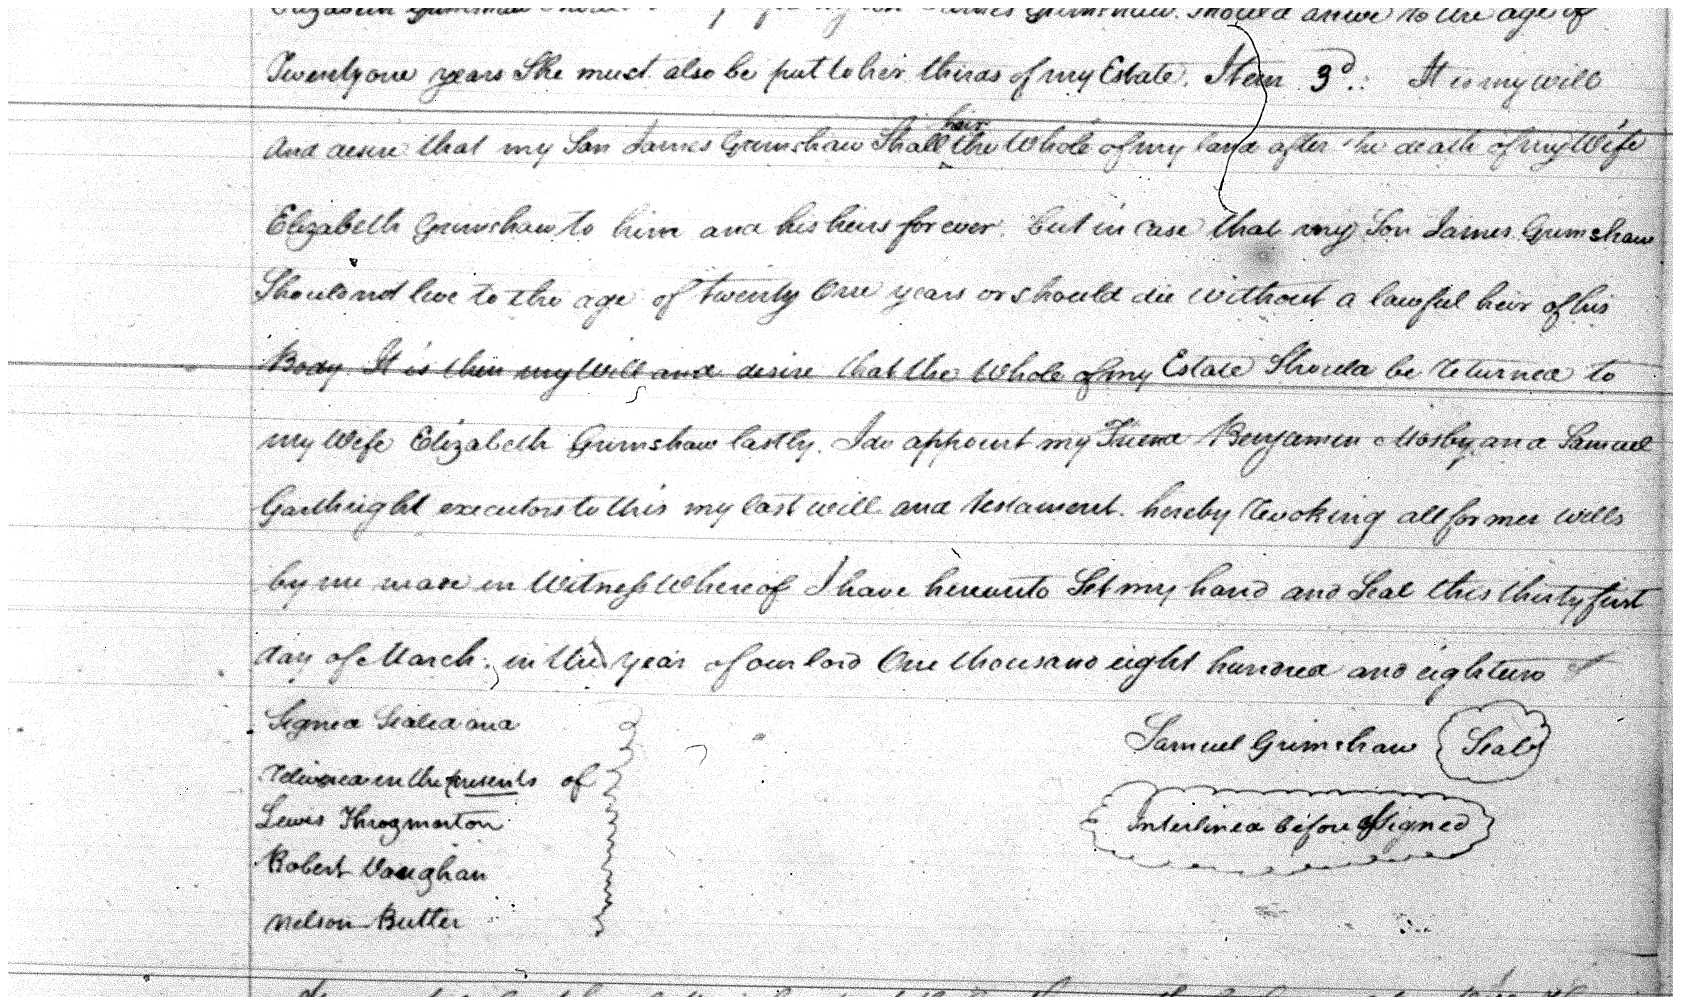 Elizabeth Grimshaw my son James Grimshaw Should arive to the age of
Twentyone years She must also be put to her thirds of my Estate. Item 3d.: It is my will
and desire that my Son James Grimshaw Shall have the Whole of my land after the death of my Wife
Elizabeth Grimshaw to him and his heirs forever. but in case that my Son James Grimshaw
Should not live to the age of twenty One years or should die without a lawful heir of his
Body It is then my Will and desire that the Whole of my Estate Should be returned to
my Wife Elizabeth Grimshaw lastly. I do appoint my Friend Benjamin Mosby and Samuel
Garthright executors to this my last will and testament. hereby revoking all former wills
by me made in Witness Whereof I have hereunto Set my hand and Seal this thirty first
day of March. in the year of our lord One thousand eight hundred and eighteen
Signed Sealed and
delivered in the presents of
Lewis Throgmorton
Robert Vaughan
Nelson Butler
Samuel Grimshaw Seal
Interlined before Signed